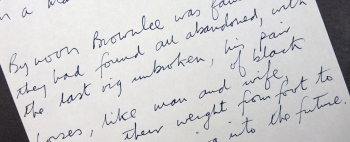 n a
By noon Brownlee was
they had found all abandoned, with
the last rig unbroken, his pair
of black
horses, like man and wife,
their weight from foot to
into the future.